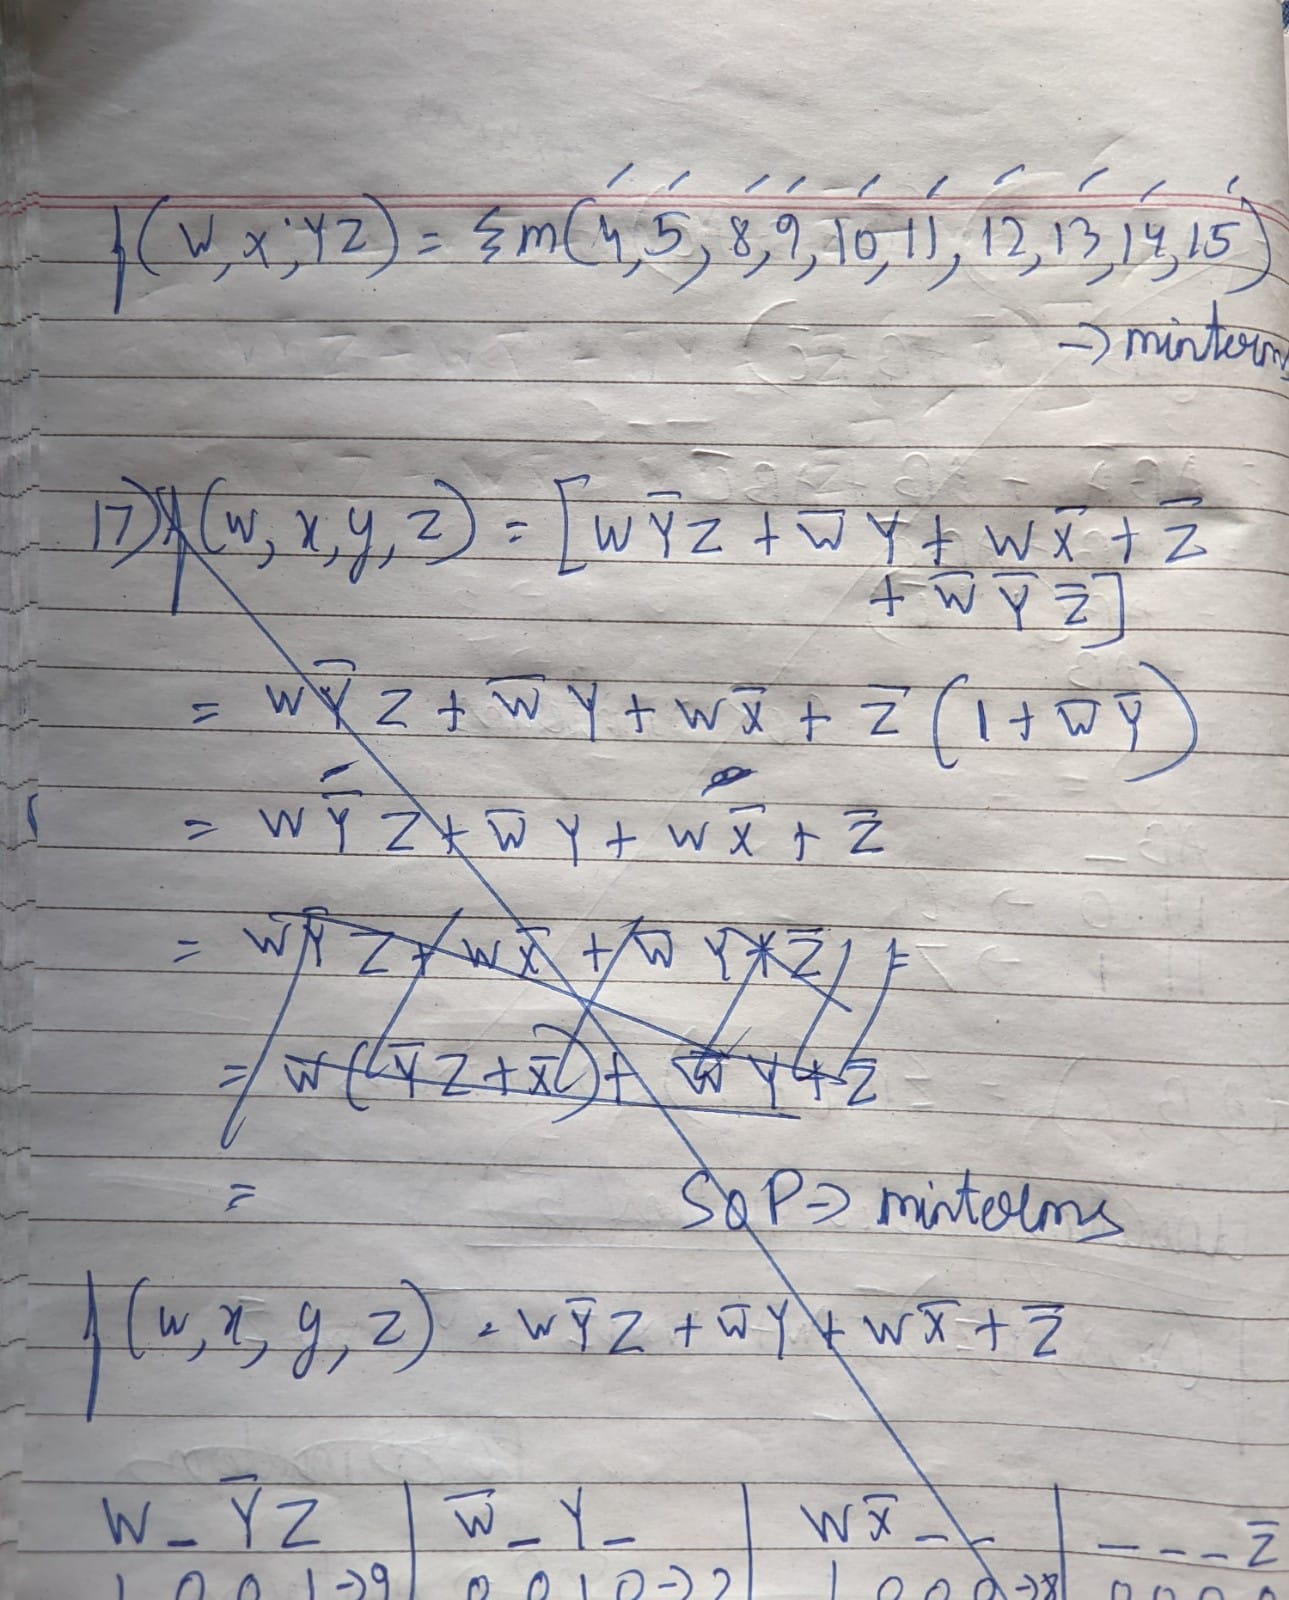 f(W,X,YZ) = Σm(4,5,8,9,10,11,12,13,14,15)
→ minterm
17) f(w,x,y,z) = [WȲZ + W̄Y + WX̄ + Z̄
+ W̄ȲZ̄]
= WȲZ + W̄Y + WX̄ + Z̄(1+W̄Ȳ)
= WȲZ + W̄Y + WX̄ + Z̄
= WȲZ + WX̄ + W̄Y + Z̄ =
= W(ȲZ+X̄) + W̄Y + Z̄
=
SOP ⇒ minterms
f(w,x,y,z) = WȲZ + W̄Y + WX̄ + Z̄
W _ ȲZ | W̄ _ Y _ | WX̄ _ _ | _ _ _ Z̄
1 0 0 1 → 9 | 0 0 1 0 → 2 | 1 0 0 0 → 8 | 0 0 0 0